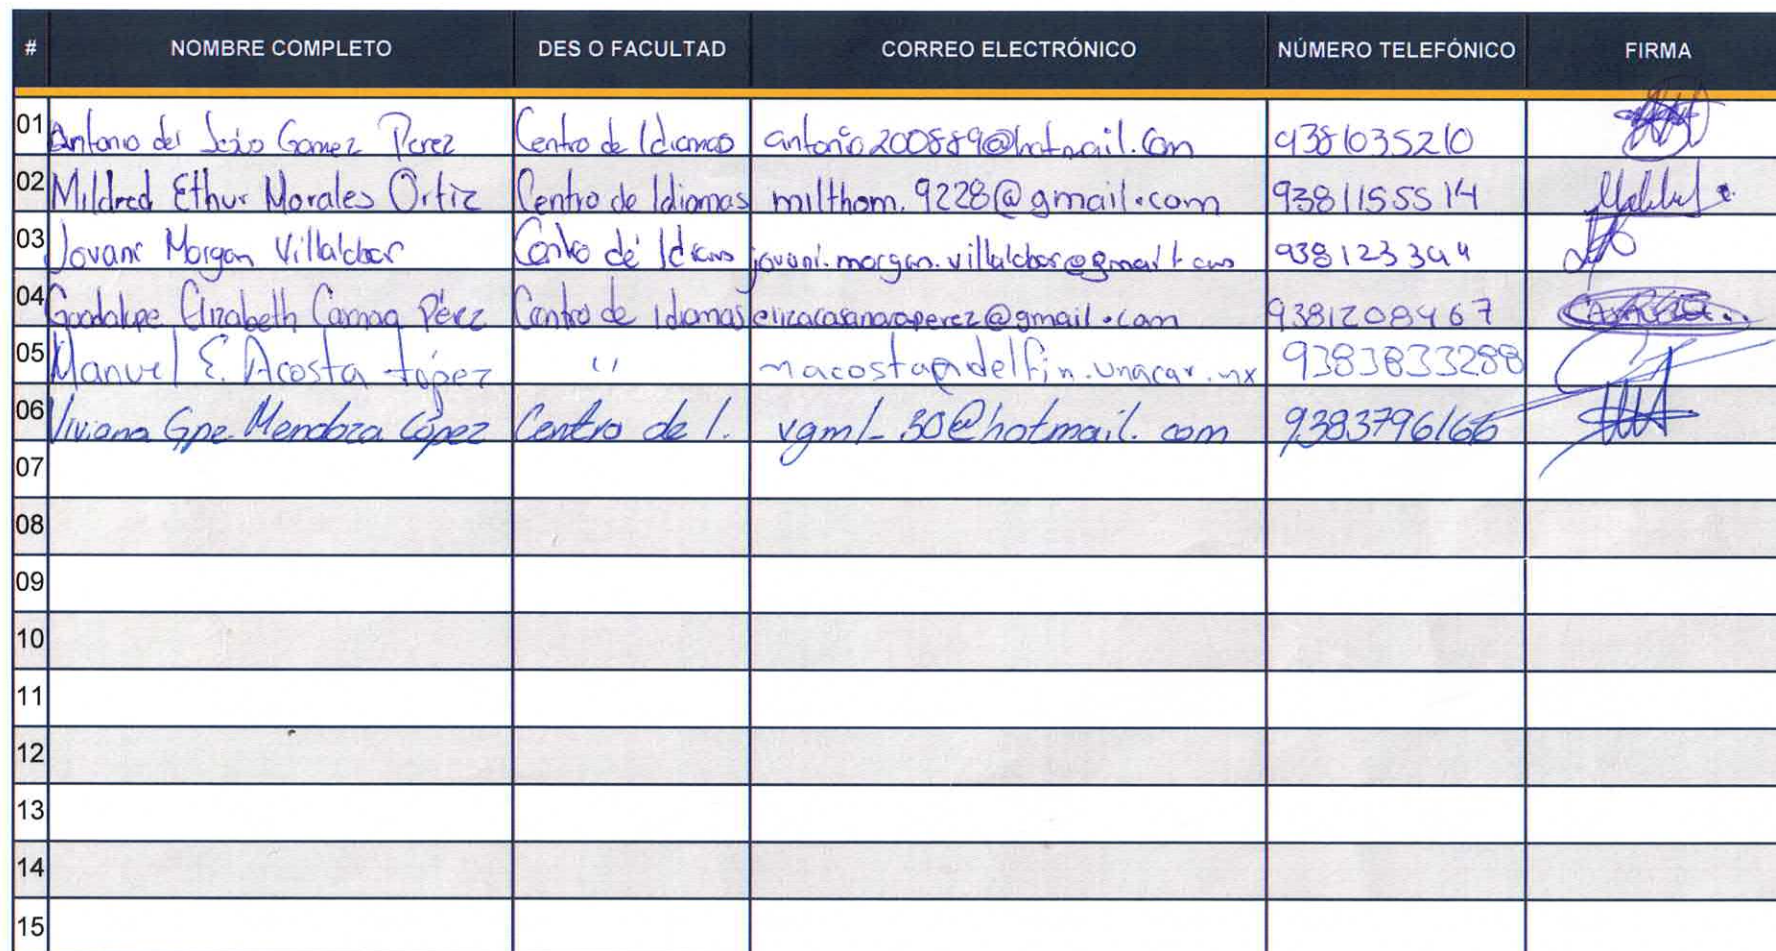 # NOMBRE COMPLETO DES O FACULTAD CORREO ELECTRÓNICO NÚMERO TELEFÓNICO FIRMA
01 Antonio del Gomez Perez Centro de Idiomas antonio200889@hotmail.com 9381035210
02 Mildred Ethur Morales Ortiz Centro de Idiomas milthom.9228@gmail.com 9381155514
03 Jovani Morgan Centro de 
04 Guadalupe Elizabeth Pérez Centro de Idiomas 9381208467
05 Manuel E. Acosta López " macosta@delfin.unacar.mx 9383833288
06 Viviana Gpe. Mendoza López Centro de I. vgml_30@hotmail.com 9383796166
07
08
09
10
11
12
13
14
15